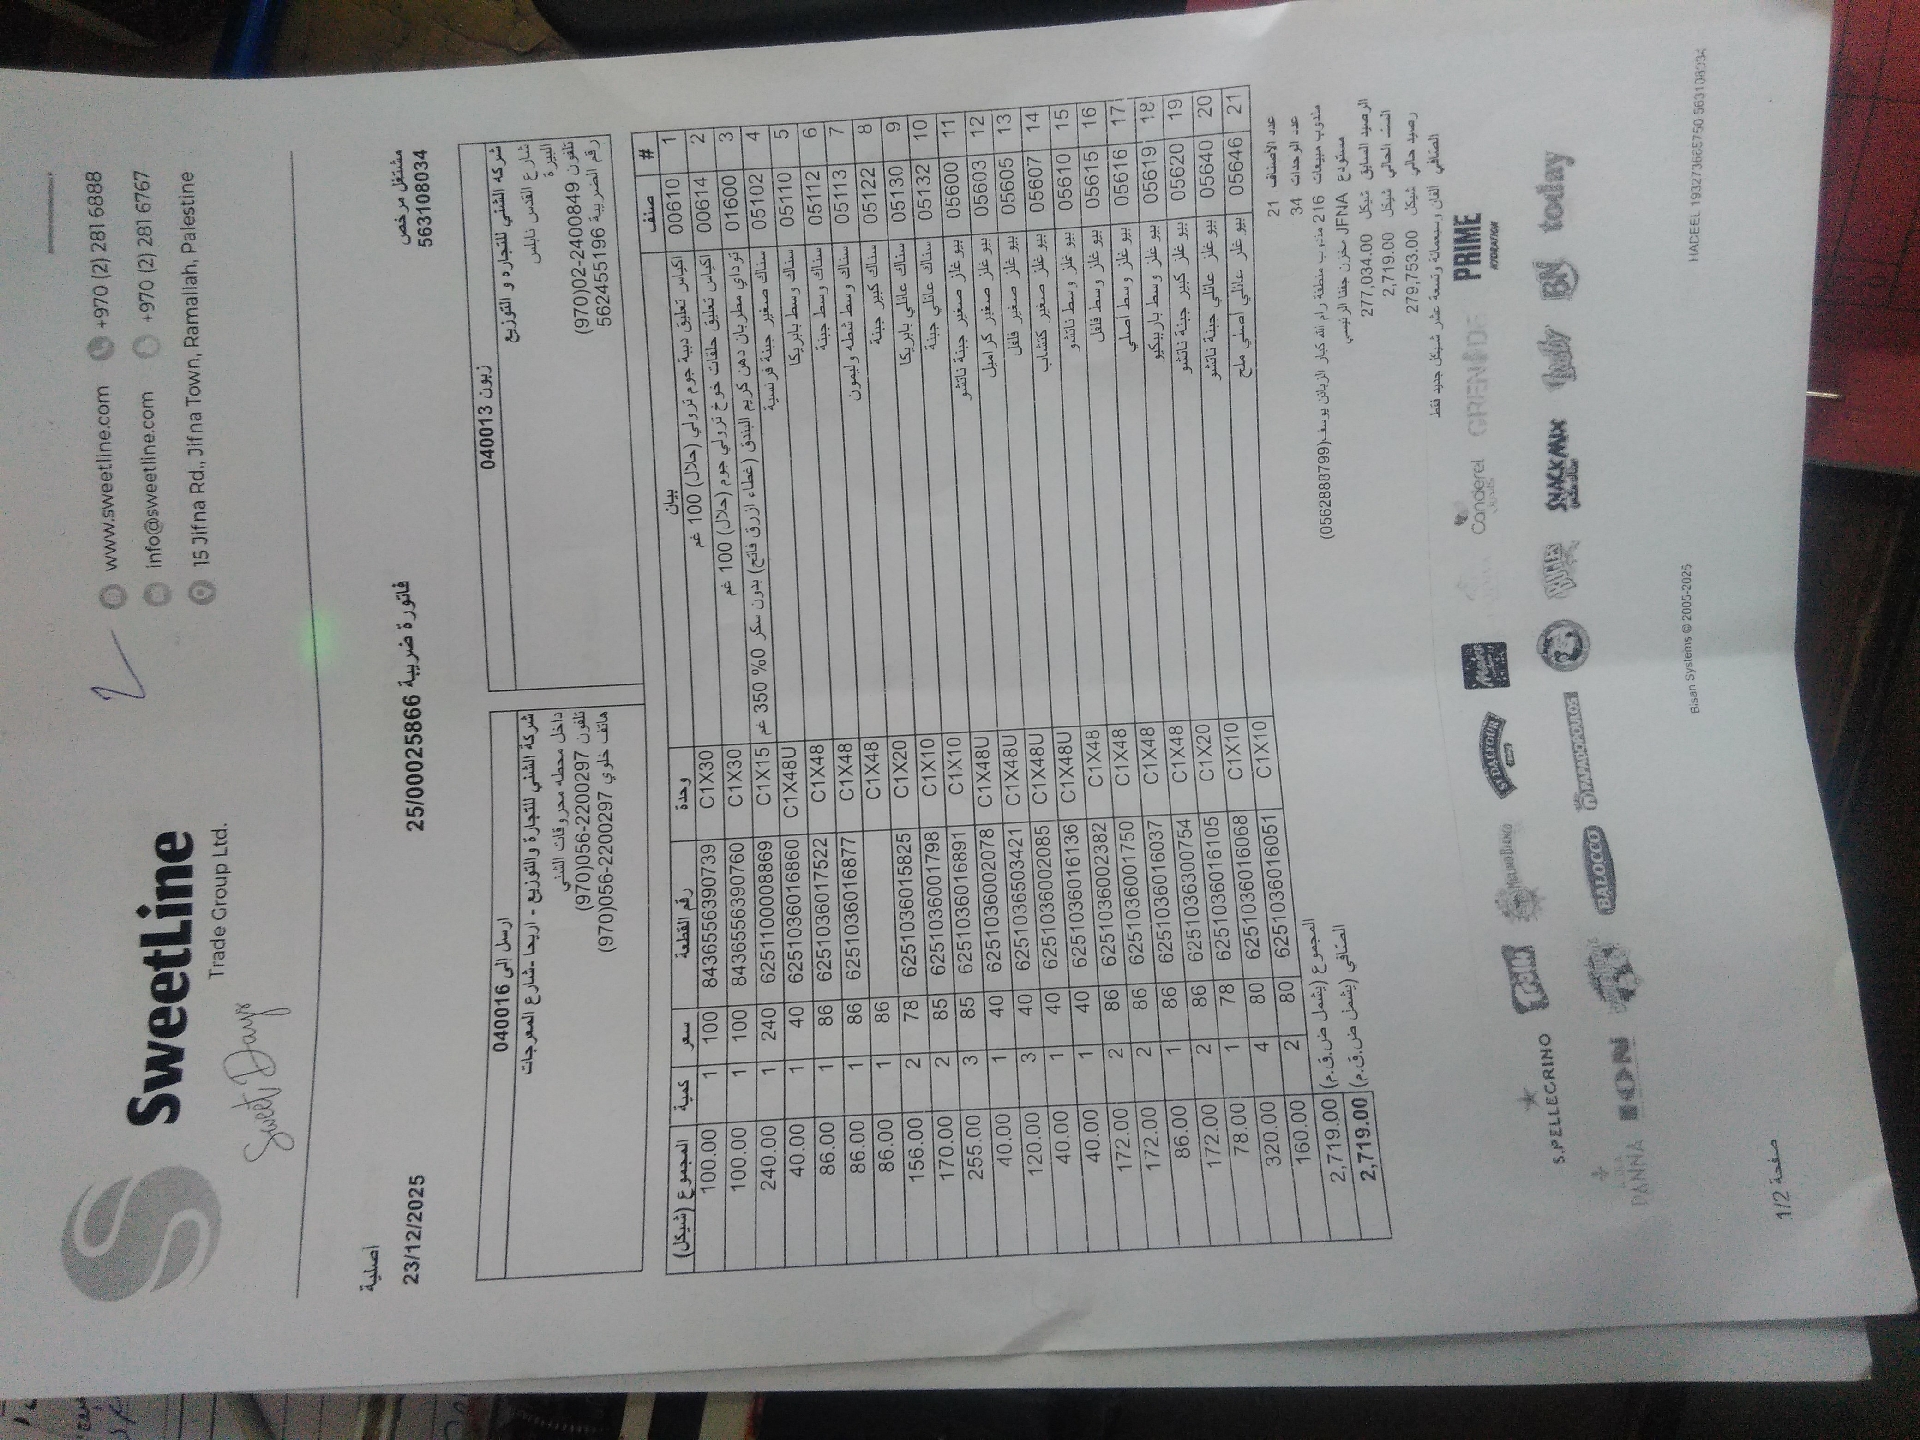 SweetLine
Trade Group Ltd.
Sweet Days
www.sweetline.com +970 (2) 281 6888
info@sweetline.com +970 (2) 281 6767
15 Jifna Rd., Jifna Town, Ramallah, Palestine
اصلية
مشتغل مرخص
23/12/2025 فاتورة ضريبية 25/00025866 563108034
زبون 040013
شركة الشني للتجارة و التوزيع
شارع القدس نابلس
البيرة
تلفون 02-2400849(970)
رقم الضريبة 562455196
ارسل إلى 040016
شركة الشني للتجارة والتوزيع - اريحا -شارع المعرجات
داخل محطه محروقات الشني
تلفون 056-2200297(970)
هاتف خلوي 056-2200297(970)
# صنف بيان وحدة رقم القطعة سعر كمية المجموع (شيكل)
1 00610 اكياس تعليق دببة جوم ترولي (حلال) 100 غم C1X30 8436556390739 100 1 100.00
2 00614 اكياس تعليق حلقات خوخ ترولي جوم (حلال) 100 غم C1X30 8436556390760 100 1 100.00
3 01600 توداي مطربان دهن كريم البندق (غطاء ازرق فاتح) بدون سكر 0% 350 غم C1X15 6251100008869 240 1 240.00
4 05102 سناك صغير جبنة فرنسية C1X48U 6251036016860 40 1 40.00
5 05110 سناك وسط بابريكا C1X48 6251036017522 86 1 86.00
6 05112 سناك وسط جبنة C1X48 6251036016877 86 1 86.00
7 05113 سناك وسط شطه وليمون C1X48 86 1 86.00
8 05122 سناك كبير جبنة C1X20 6251036015825 78 2 156.00
9 05130 سناك عائلي بابريكا C1X10 6251036001798 85 2 170.00
10 05132 سناك عائلي جبنة C1X10 6251036016891 85 3 255.00
11 05600 بيو غلز صغير جبنة ناتشو C1X48U 6251036002078 40 1 40.00
12 05603 بيو غلز صغير كراميل C1X48U 6251036503421 40 3 120.00
13 05605 بيو غلز صغير فلفل C1X48U 6251036002085 40 1 40.00
14 05607 بيو غلز صغير كتشاب C1X48U 6251036016136 40 1 40.00
15 05610 بيو غلز وسط ناتشو C1X48 6251036002382 86 2 172.00
16 05615 بيو غلز وسط فلفل C1X48 6251036001750 86 2 172.00
17 05616 بيو غلز وسط اصلي C1X48 6251036016037 86 1 86.00
18 05619 بيو غلز وسط باربيكيو C1X48 6251036300754 86 2 172.00
19 05620 بيو غلز كبير جبنة ناتشو C1X20 6251036016105 78 1 78.00
20 05640 بيو غلز عائلي جبنة ناتشو C1X10 6251036016068 80 4 320.00
21 05646 بيو غلز عائلي اصلي ملح C1X10 6251036016051 80 2 160.00
المجموع (يشمل ض.ق.م) 2,719.00
الصافي (يشمل ض.ق.م) 2,719.00
عدد الأصناف 21
عدد الوحدات 34
مندوب مبيعات 216 مندوب منطقة رام الله كبار الزبائن يوسف(0562888799)
مستودع JFNA مخزن جفنا الرئيسي
الرصيد السابق شيكل 277,034.00
السند الحالي شيكل 2,719.00
رصيد حالي شيكل 279,753.00
الصافي الفان وسبعمائة وتسعة عشر شيكل جديد فقط
Canderel
PRIME
HYDRATION
ST.DALFOUR
S.PELLEGRINO
PANNA
ION
BALOCCO
PAPADOPOULOS
SNACK MIX
today
صفحة 1/2
Bisan Systems © 2005-2025